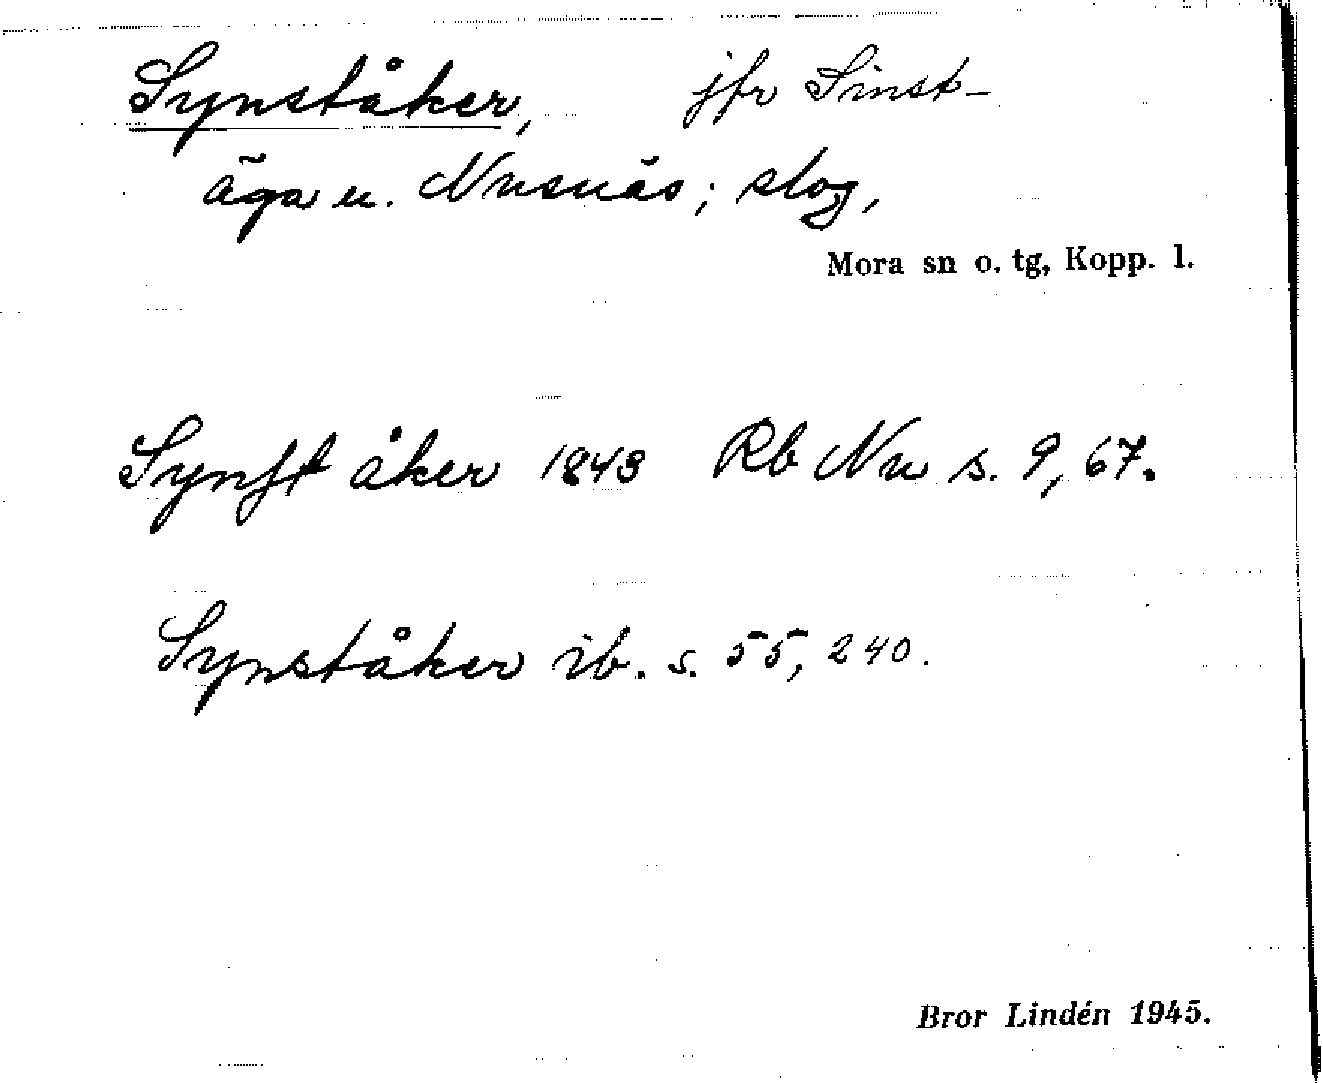 Synståker, jfr Sinst-
äga u. Nusnäs; slog,
Mora sn o. tg, Kopp. l.
Synſt åker 1843 Rb Nu s. 9, 67.
Synståker ib. s. 55, 240.
Bror Lindén 1945.